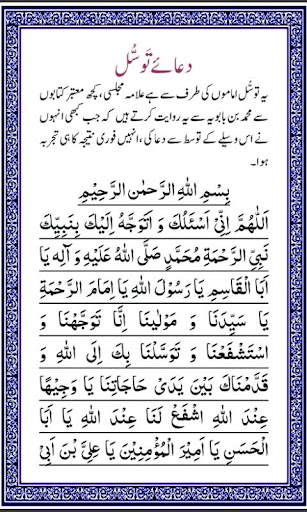 دعائے تَوسُّل
یہ توسُّل اماموں کی طرف سے ہے علامہ مجلسی، کچھ معتبر کتابوں
سے محمد بن بابویہ سے یہ روایت کرتے ہیں کہ جب کبھی انہوں
نے اس وسیلے کے توسط سے دعا کی، انہیں فوری نتیجہ کا ہی تجربہ
ہوا۔
بِسْمِ اللهِ الرَّحْمٰنِ الرَّحِيْمِ
اَللّٰهُمَّ اِنِّيْ اَسْئَلُكَ وَ اَتَوَجَّهُ اِلَيْكَ بِنَبِيِّكَ
نَبِيِّ الرَّحْمَةِ مُحَمَّدٍ صَلَّى اللهُ عَلَيْهِ وَ آلِهِ يَا
اَبَا الْقَاسِمِ يَا رَسُوْلَ اللهِ يَا اِمَامَ الرَّحْمَةِ
يَا سَيِّدَنَا وَ مَوْلٰينَا اِنَّا تَوَجَّهْنَا وَ
اسْتَشْفَعْنَا وَ تَوَسَّلْنَا بِكَ اِلَى اللهِ وَ
قَدَّمْنَاكَ بَيْنَ يَدَىْ حَاجَاتِنَا يَا وَجِيْهًا
عِنْدَ اللهِ اشْفَعْ لَنَا عِنْدَ اللهِ يَا اَبَا
الْحَسَنِ يَا اَمِيْرَ الْمُؤْمِنِيْنَ يَا عَلِيَّ بْنَ اَبِيْ